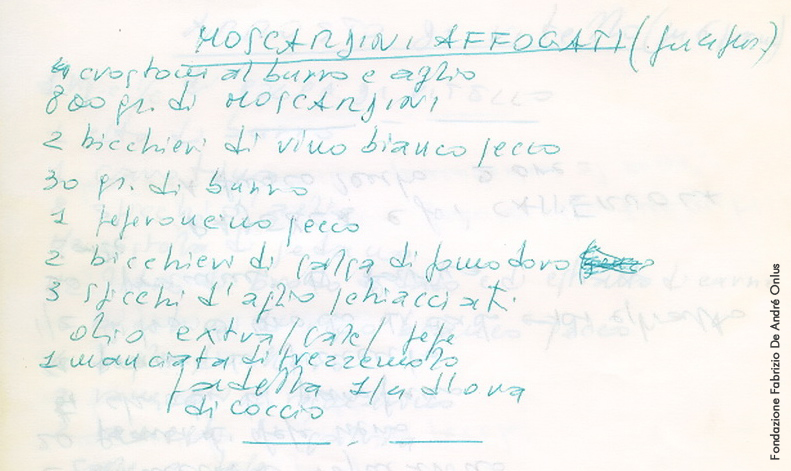 MOSCARDINI AFFOGATI (
4 crostoni al burro e aglio
800 gr. di MOSCARDINI
2 bicchieri di vino bianco secco
30 gr. di burro
1 peperoncino secco
2 bicchieri di salsa di pomodoro
3 spicchi d'aglio schiacciati.
olio extra/sale/pepe
1 manciata di prezzemolo
padella 1/4 d'ora
di coccio
Fondazione Fabrizio De André Onlus